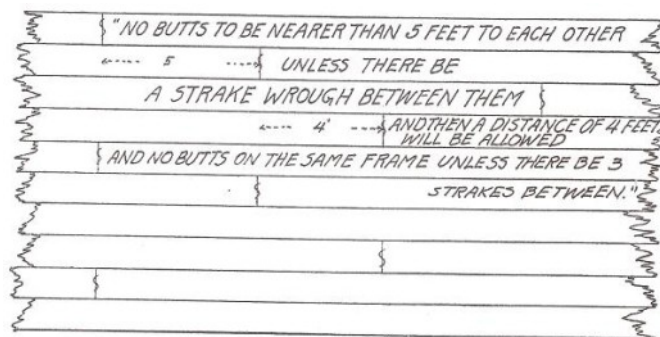 "NO BUTTS TO BE NEARER THAN 5 FEET TO EACH OTHER
5 UNLESS THERE BE
A STRAKE WROUGH BETWEEN THEM
4' AND THEN A DISTANCE OF 4 FEET
WILL BE ALLOWED
AND NO BUTTS ON THE SAME FRAME UNLESS THERE BE 3
STRAKES BETWEEN."